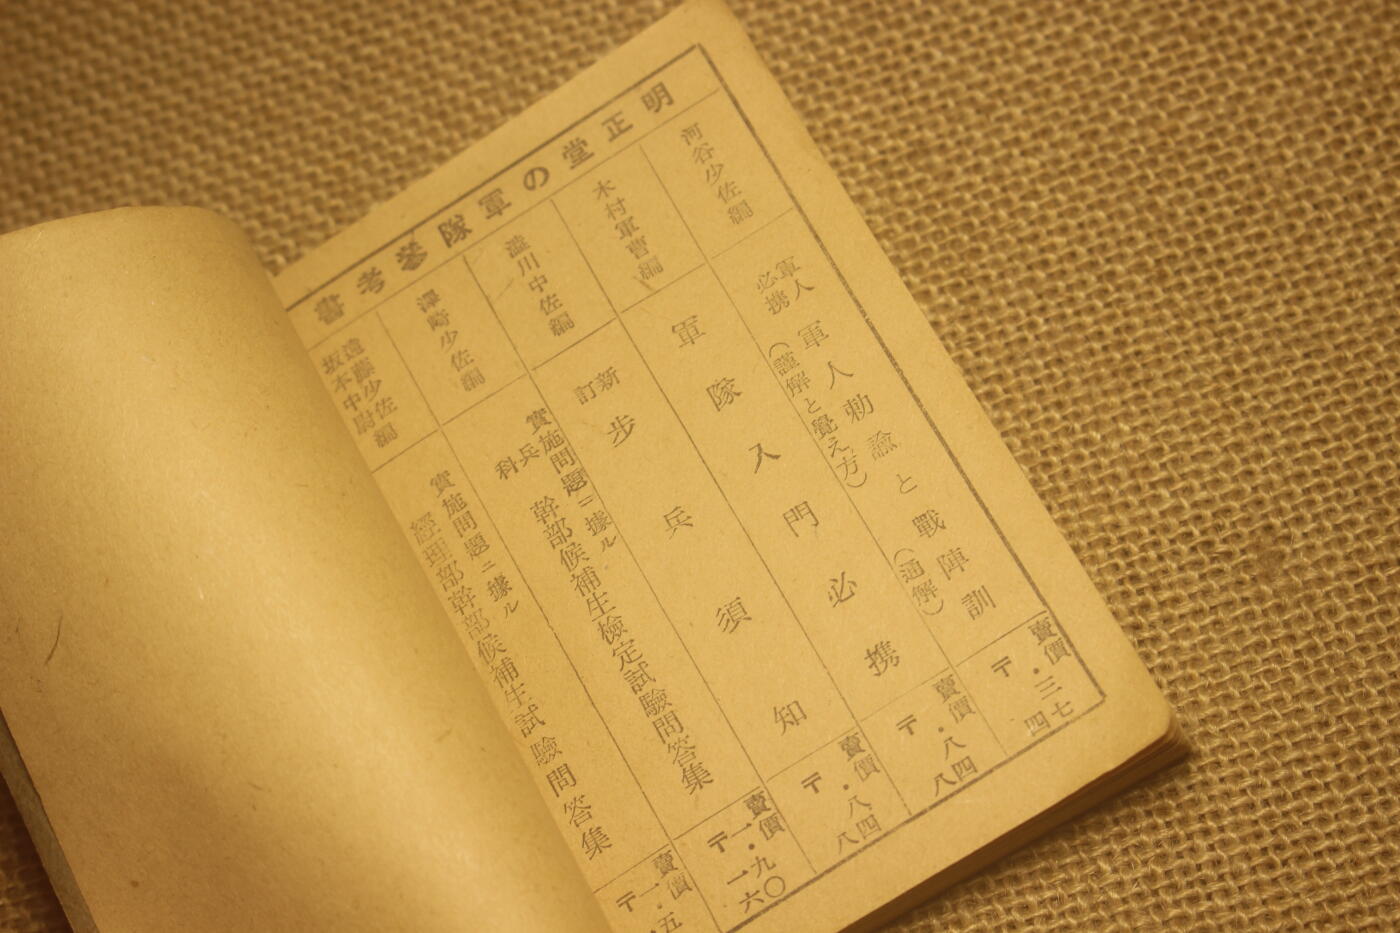 明正堂の軍隊参考書
河谷少佐編
軍人必携
軍人勅諭と戰陣訓
(謹解と覺え方)
(通解)
賣價 ・三七
〒 四
木村軍曹編
軍隊入門必携
賣價 ・八四
〒 ・八
澁川中佐編
新訂
歩兵須知
賣價 ・八四
〒 ・八
澤崎少佐編
實施問題ニ據ル
兵科
幹部候補生檢定試驗問答集
賣價 一・九〇
〒 一六
遠藤少佐
坂本中尉編
實施問題ニ據ル
經理部幹部候補生試驗問答集
賣價 一・五
〒